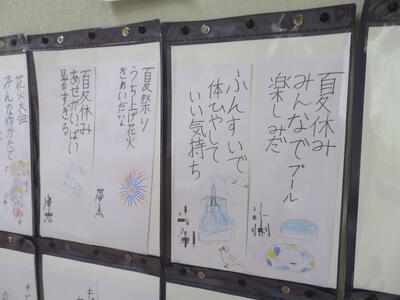 夏休み
みんなでプール
楽しみだ
ふんすいで
体ひやして
いい気持ち
夏祭り
うち上げ花火
きれいだな
夏休み
あせがいっぱい
暑すぎる
花火大会
みんな